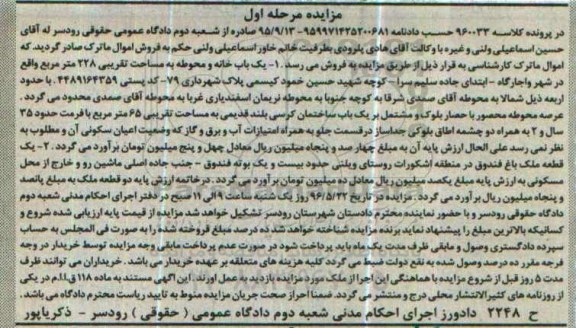 مزایده مرحله اول
در پرونده کلاسه ۹۶۰۰۳۳ حسب دادنامه ۹۵۹۹۷۱۴۲۵۲۰۰۶۸۱ - ۹۵/۹/۱۳ صادره از شعبه دوم دادگاه عمومی حقوقی رودسر له آقای
حسین اسماعیلی ولنی و غیره با وکالت آقای هادی پلرودی بطرفیت خانم خاور اسماعیلی ولنی حکم به فروش اموال ماترک صادر گردید که
اموال ماترک کارشناسی به قرار ذیل از طریق مزایده به فروش می رسد .۱- یک باب خانه و محوطه به مساحت تقریبی ۲۲۸ متر مربع واقع
در شهر واجارگاه - ابتدای جاده سلیم سرا - کوچه شهید حسین خمود کیسمی پلاک شهرداری ۷۹- کد پستی ۴۴۸۹۱۶۴۳۵۹ .با حدود
اربعه ذیل شمالا به محوطه آقای صمدی شرقا به کوچه جنوبا به محوطه نریمان اسفندیاری غربا به محوطه آقای صمدی محدود می گردد .
عرصه محوطه محصور با حصار بلوک و مشتمل بر یک باب ساختمان کرسی بلند قدیمی به مساحت تقریبی ۶۵ متر مربع با قدمت حدود ۳۵
سال و ۲ به همراه دو چشمه اطاق بلوکی جداساز در قسمت جلو به همراه امتیازات آب و برق و گاز که وضعیت اعیان سکونی آن و مطلوب به
نظر نمی رسد علی الحال ارزش پایه آن به مبلغ چهار صد و پنجاه میلیون ریال معادل چهل و پنج میلیون تومان برآورد می گردد .۲- یک
قطعه ملک باغ فندوق در منطقه اشکورات روستای ویلنی حدود بیست و یک بوته فندوق - جنب جاده اصلی ماشین رو و خارج از محل
مسکونی به ارزش پایه مبلغ یکصد میلیون ریال معادل ده میلیون تومان برآورد می گردد . در خاتمه ارزش پایه دو قطعه ملک به مبلغ پانصد
و پنجاه میلیون ریال برآورد می گردد .مزایده در تاریخ ۹۶/۵/۲۲ روز یک شنبه ساعت ۹ الی ۱۱ صبح در دفتر اجرای احکام مدنی شعبه دوم
دادگاه حقوقی رودسر و با حضور نماینده محترم دادستان شهرستان رودسر تشکیل خواهد شد مزایده از قیمت پایه ارزیابی شده شروع و
کسانیکه بالاترین مبلغ را پیشنهاد نماید برنده مزایده شناخته خواهد شد ده درصد مبلغ فروخته شده را به صورت فی المجلس به حساب
سپرده دادگستری وصول و مابقی ظرف مدت یک ماه باید پرداخت شود در صورت عدم پرداخت مابقی وجه مزایده توسط خریدار در وجه
فرجه مقرر ده درصد وصول شده به نفع دولت ضبط می گردد کلیه هزینه های متعلقه بر عهده خریدار می باشد. خریداران می توانند ظرف
مدت ۵ روز قبل از شروع مزایده با هماهنگی این اجرا از ملک مورد مزایده بازدید به عمل اورند. این اگهی مستند به ماده ۱۱۸ ق.ا.م در یکی
از روزنامه های کثیرالانتشار محلی درج و منتشر می گردد. ضمنا احراز صحت جریان مزایده منوط به تایید ریاست محترم دادگاه می باشد.
ح ۲۲۴۸ دادورز اجرای احکام مدنی شعبه دوم دادگاه عمومی ( حقوقی ) رودسر - ذکریاپور